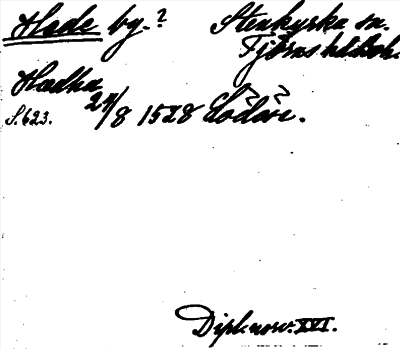 Hede by.? Stenkyrka sn.
Tjörns hd. Boh.
Hædha
24/8 1528 Lödöse.
S. 623.
Dipl. norv. XVI.